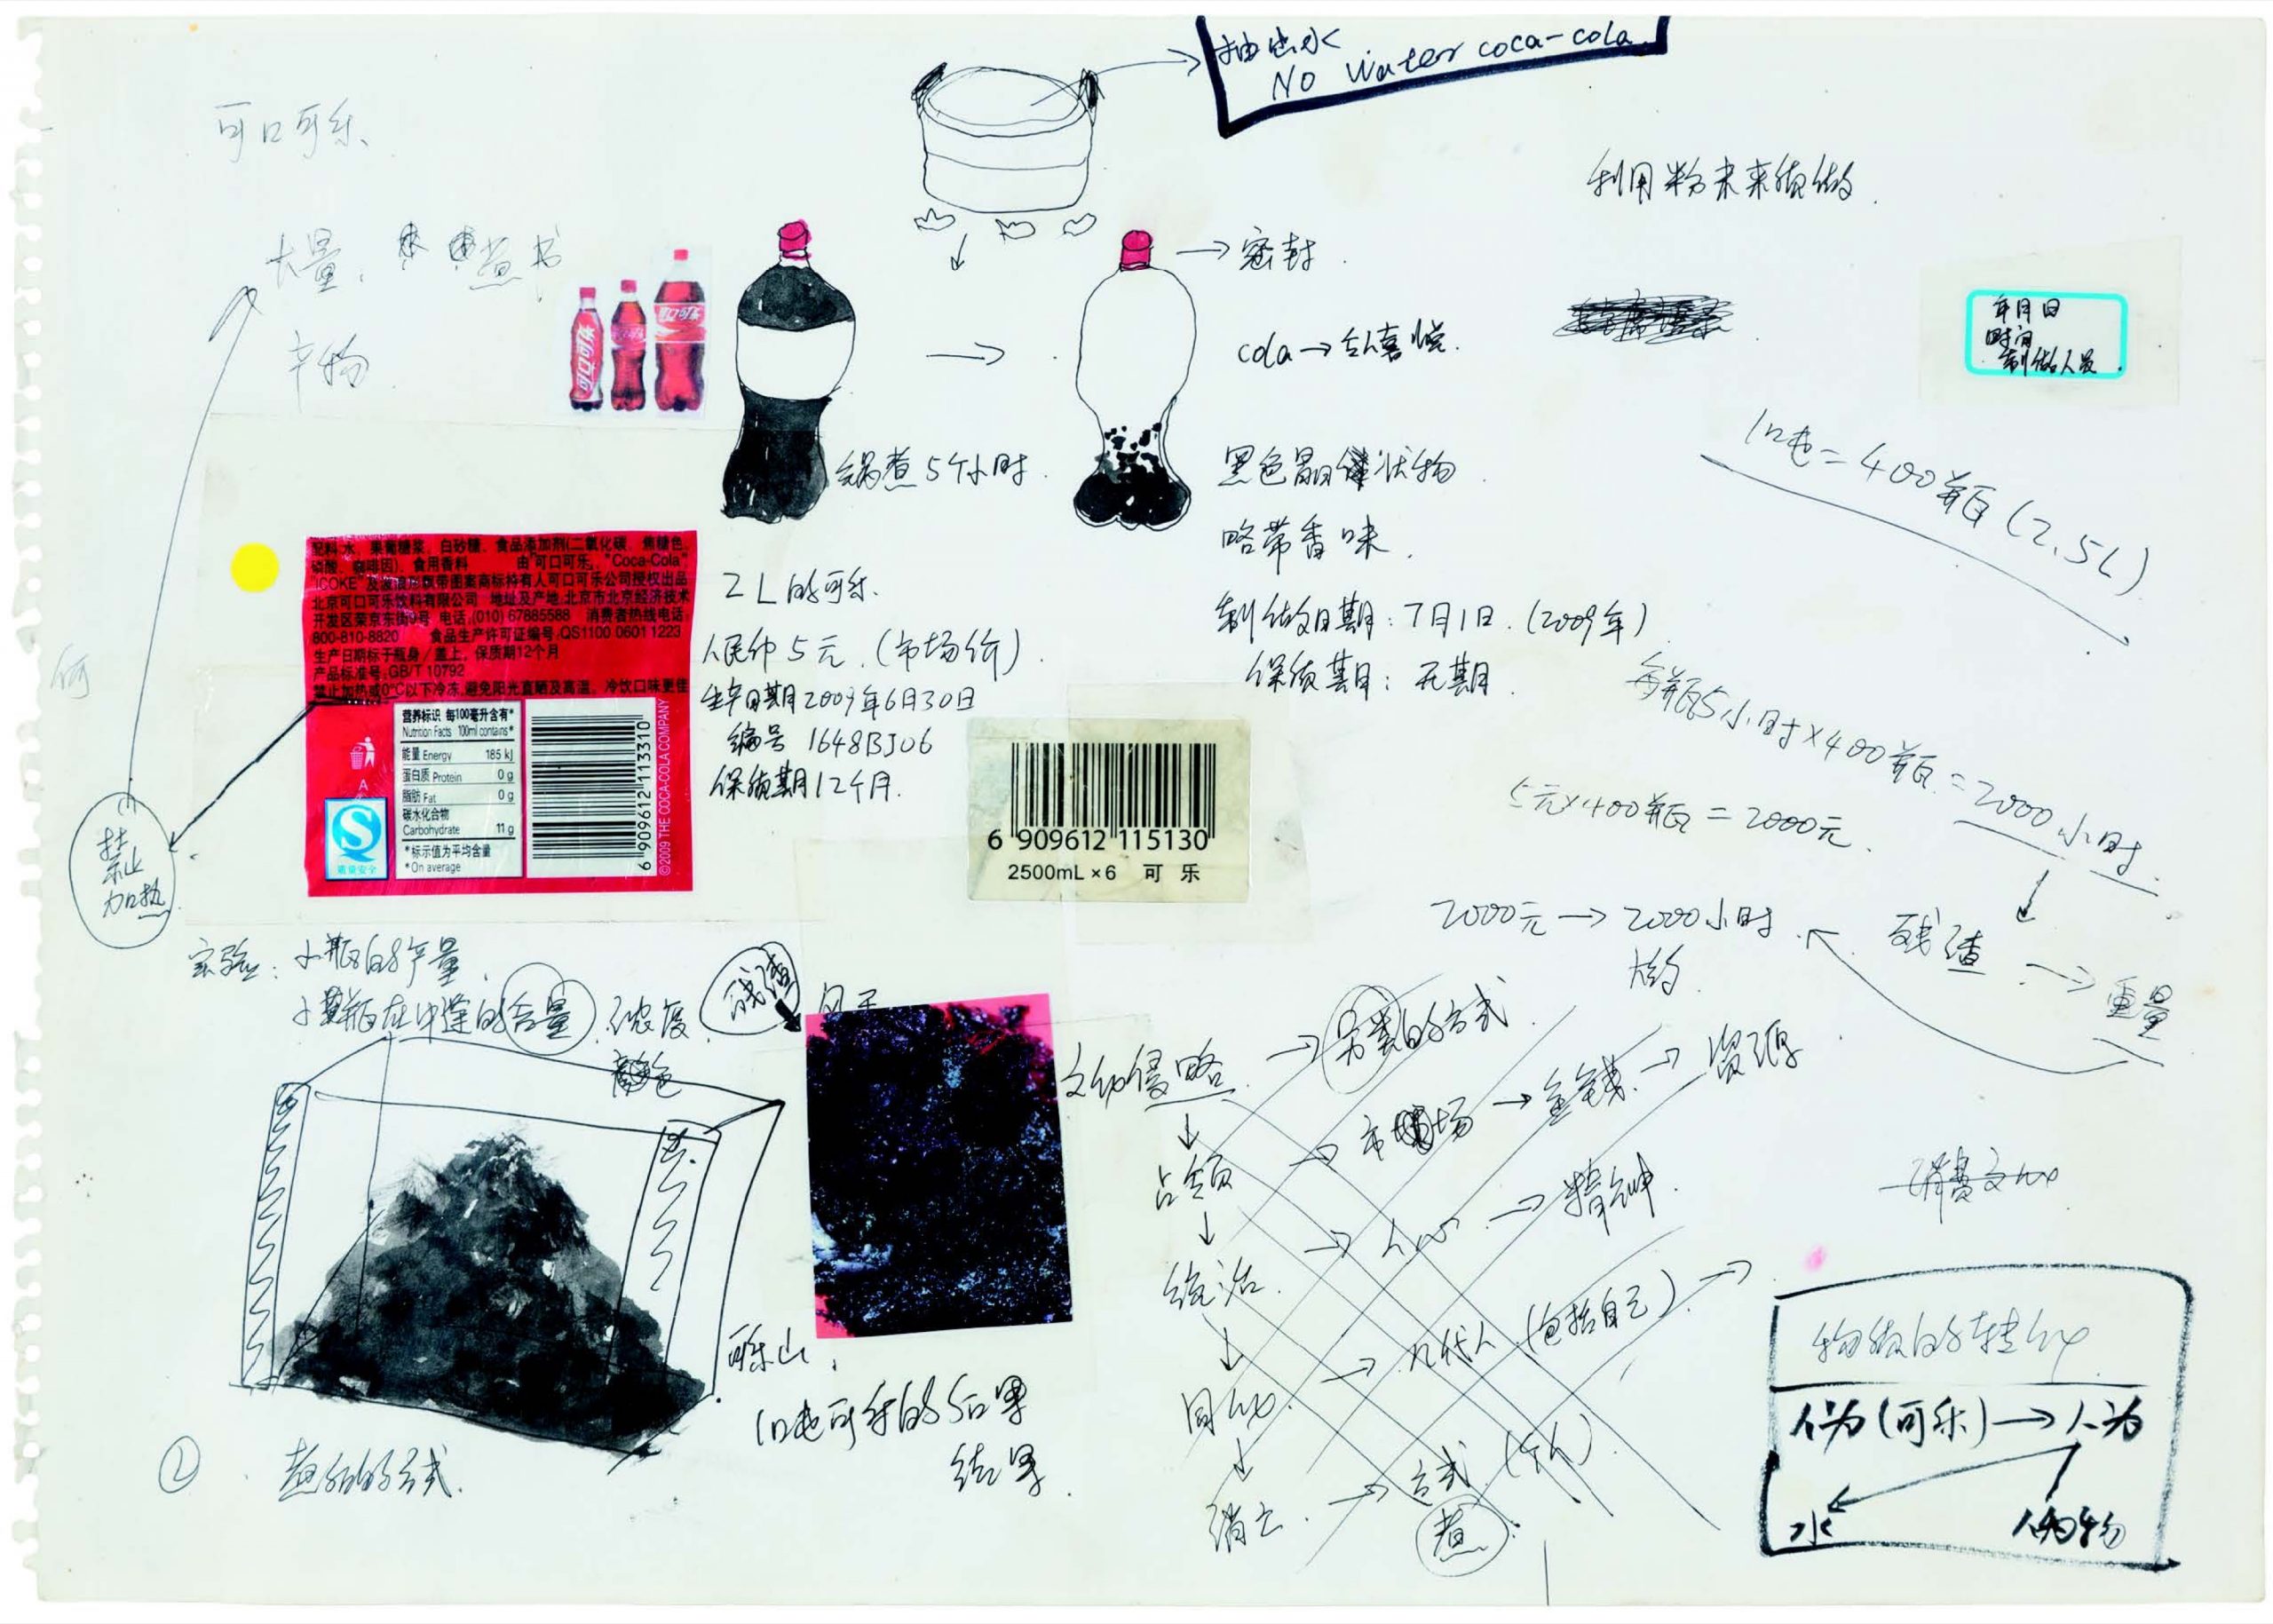 抽出水
NO Water coca-cola
可口可乐
利用粉末来须做
大量. 煮书
密封
年月日
时间
制做人员
cola → 令人喜悦
1吨=400瓶(2.5L)
锅煮5个小时
黑色晶体状物
略带香味
配料:水、果葡糖浆、白砂糖、食品添加剂(二氧化碳、焦糖色、
磷酸、咖啡因)、食用香料 由"可口可乐"、"Coca-Cola"
"iCOKE"及波浪形飘带图案商标持有人可口可乐公司授权出品
北京可口可乐饮料有限公司 地址及产地:北京市北京经济技术
开发区荣京东街9号 电话:(010)67885588 消费者热线电话:
800-810-8820 食品生产许可证编号:QS1100 0601 1223
生产日期标于瓶身/盖上, 保质期12个月
产品标准号:GB/T 10792
禁止加热或0°C以下冷冻,避免阳光直晒及高温。冷饮口味更佳
营养标识 每100毫升含有*
Nutrition Facts 100ml contains*
能量 Energy 185 kJ
蛋白质 Protein 0 g
脂肪 Fat 0 g
碳水化合物
Carbohydrate 11 g
*标示值为平均含量
*On average
A
质量安全
6 909612 113310
©2009 THE COCA-COLA COMPANY
2L的可乐
人民币5元.(市场价)
生产日期2009年6月30日
编号 1648BJ06
保质期12个月.
制做日期:7月1日.(2009年)
保质期:无期
每瓶5小时×400瓶=2000小时
5元×400瓶=2000元
6 909612 115130
2500mL×6 可乐
禁止
加热
2000元→2000小时
大约
残渣 → 重量
实验: 小瓶的产量
小瓶在中逢的含量.浓度
颜色
残渣
风干
文化侵略 → 另类的方式
占领 → 市场 → 金钱 → 资源
统治 → 人心 → 精神
同化 → 几代人(包括自己)
消亡 → 方式
煮
消费文化
可乐山
1吨可乐的后果
结果
② 煮的方式
物质的转化
人为(可乐) → 人为
水 人为物